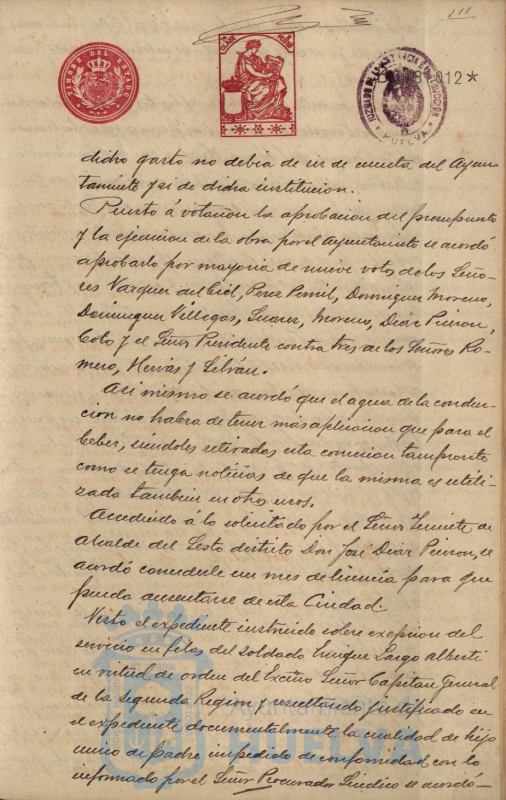 111
TIMBRE DEL ESTADO
JUZGADO DE 1ª INSTANCIA E INSTRUCCION
HUELVA
012*
dicho gasto no debia de ser de cuenta del Ayun-
tamiento y si de dicha institucion.
Puesto á votacion la aprobacion del presupuesto
y la ejecucion de la obra por el Ayuntamiento se acordó
aprobarlo por mayoria de nueve votos de los Seño-
res Vazquez del Cid, Perez Pomil, Dominguez Moreno,
Dominguez Villegas, Suarez, Moreno, Diaz Pinzon,
Coto y el Señor Presidente contra tres de los Señores Ro-
mero, Hervas y Silván.
Asi mismo se acordó que el agua de la conduc-
cion no habra de tener más aplicacion que para el
beber, siendoles retirada esta concesion tan pronto
como se tenga noticias de que la misma es utili-
zada tambien en otros usos.
Accediendo á lo solicitado por el Señor Teniente de
Alcalde del Sesto distrito Don José Diaz Pinzon, se
acordó concederle un mes de licencia para que
pueda ausentarse de esta Ciudad.
Visto el expediente instruido sobre excepcion del
servicio en filas del soldado Enrique Largo Alberti
en virtud de orden del Excmo Señor Capitan General
de la Segunda Region y resultando justificado en
el expediente documentalmente la cualidad de hijo
unico de padre impedido de conformidad con lo
informado por el Señor Procurador Sindico se acordó-
Ayuntamiento
HUELVA